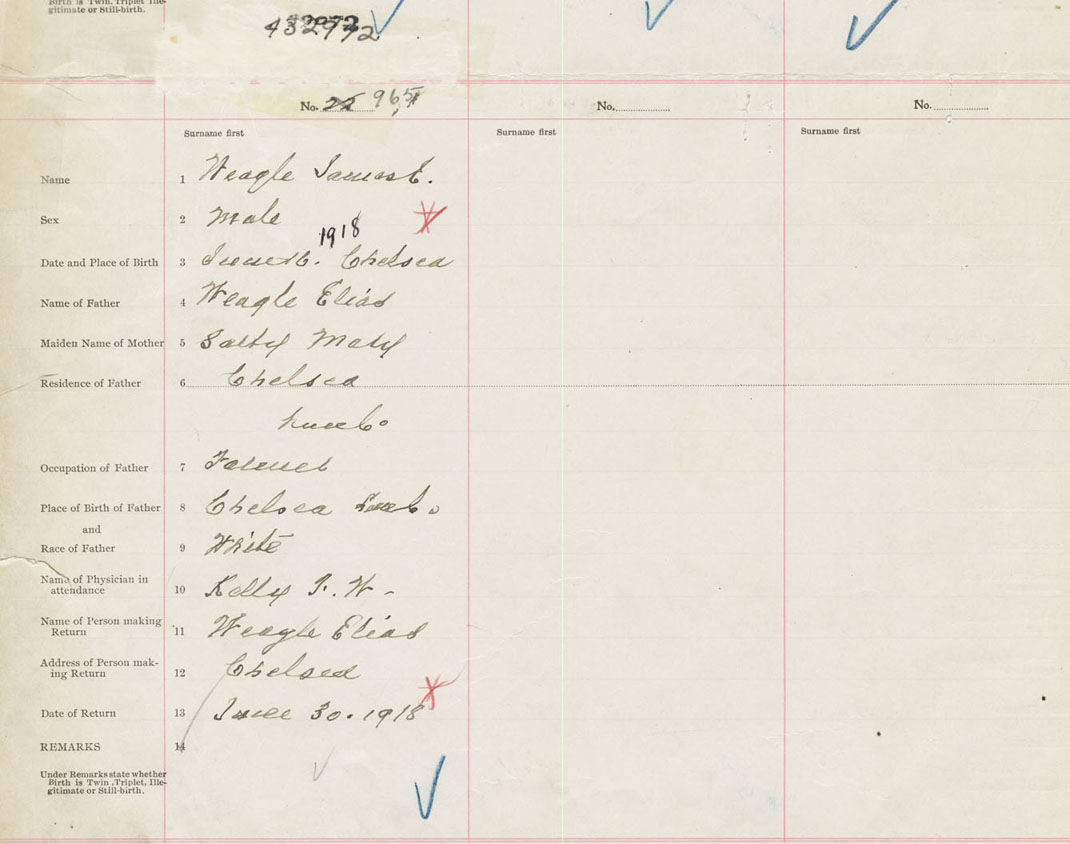 Birth is Twin, Triplet, Ille-
gitimate or Still-birth.
No. 965
No.
No.
Surname first
Surname first
Surname first
Name 1 Weagle James E.
Sex 2 Male
1918
Date and Place of Birth 3 Chelsea
Name of Father 4 Weagle Elias
Maiden Name of Mother 5 Mary
Residence of Father 6 Chelsea
Lun Co
Occupation of Father 7 Farmer
Place of Birth of Father 8 Chelsea Lun Co
and
Race of Father 9 White
Name of Physician in
attendance 10 Kelly F. W.
Name of Person making
Return 11 Weagle Elias
Address of Person mak-
ing Return 12 Chelsea
Date of Return 13 June 30. 1918
REMARKS 14
Under Remarks state whether
Birth is Twin, Triplet, Ille-
gitimate or Still-birth.